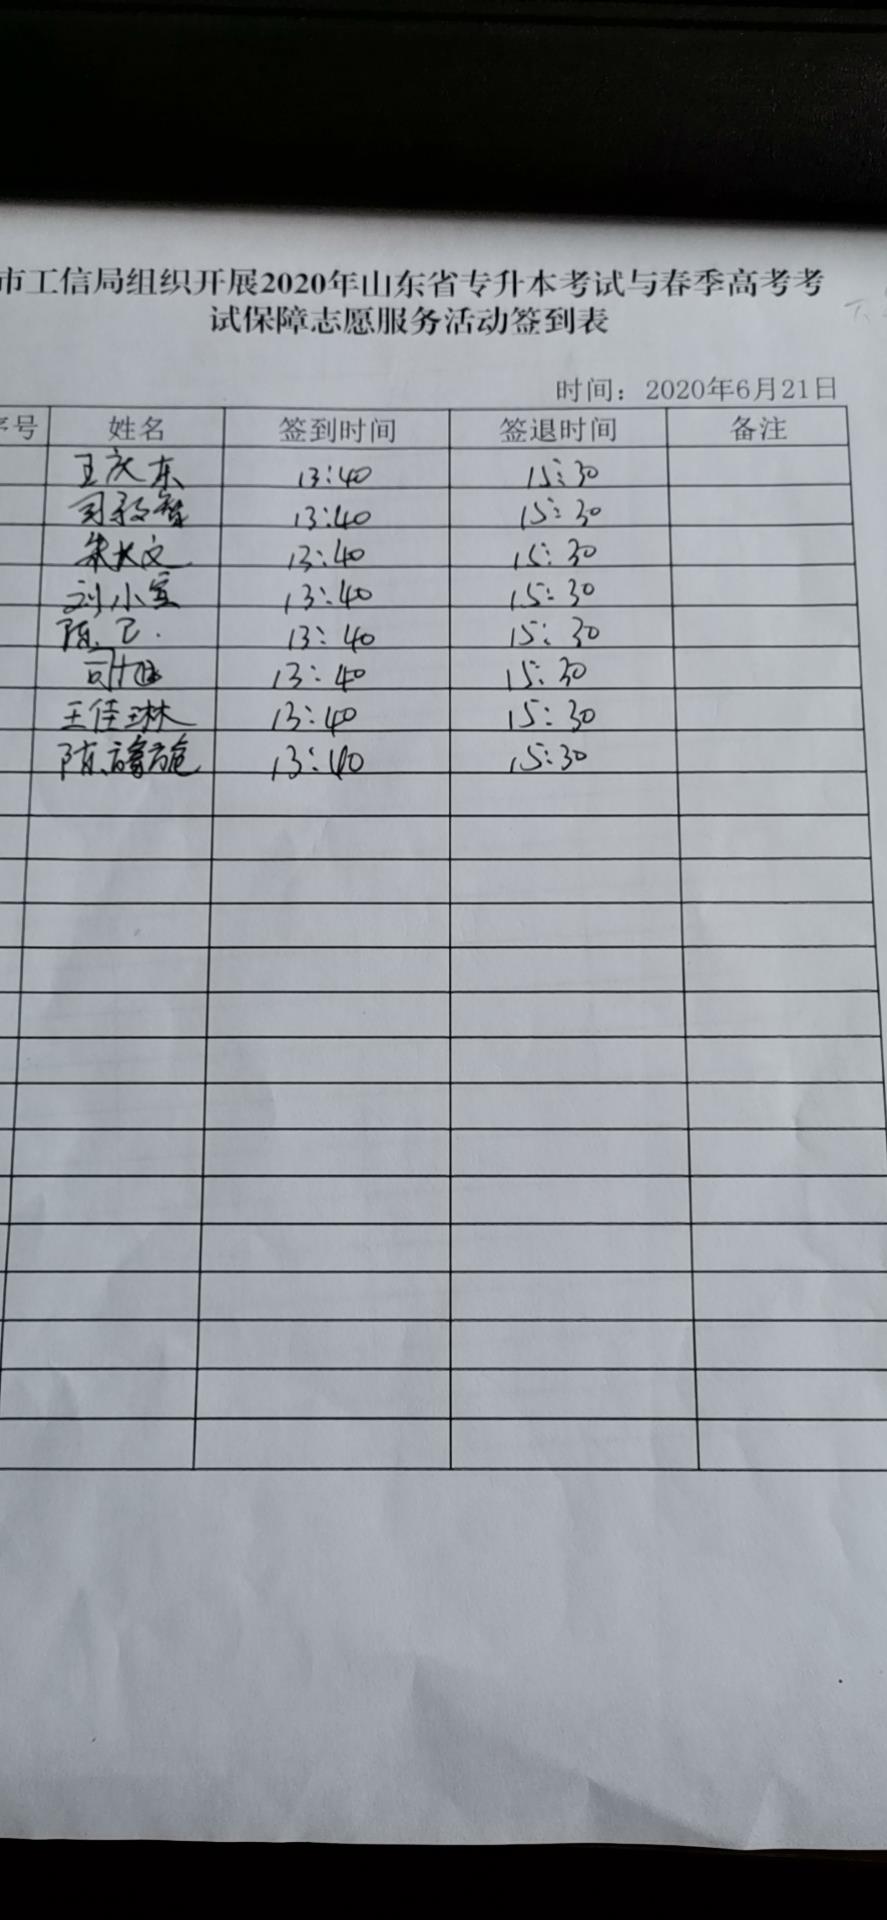 市工信局组织开展2020年山东省专升本考试与春季高考考
试保障志愿服务活动签到表
时间：2020年6月21日
序号 姓名 签到时间 签退时间 备注
王庆东 13:40 15:30
司 13:40 15:30
朱大文 13:40 15:30
刘小宝 13:40 15:30
陈 13:40 15:30
司旭 13:40 15:30
王佳琳 13:40 15:30
陈 13:40 15:30